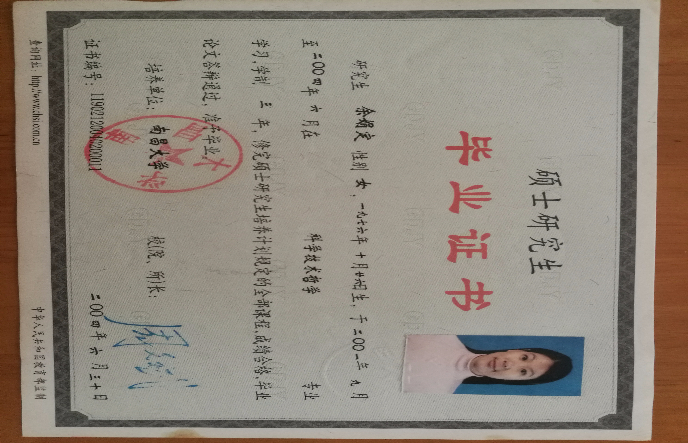 硕士研究生
毕业证书
研究生 余 性别 女，一九七六年 十月廿 日生，于二〇〇一年 九月
至二〇〇四年 六月在 科学技术哲学 专业
学习，学制 三 年，修完硕士研究生培养计划规定的全部课程，成绩合格，毕业
论文答辩通过，准予毕业。
培养单位：南昌大学 校(院、所)长：
证书编号： 二〇〇四年 六月三十日
查询网址：http://www.chsi.com.cn 中华人民共和国教育部监制